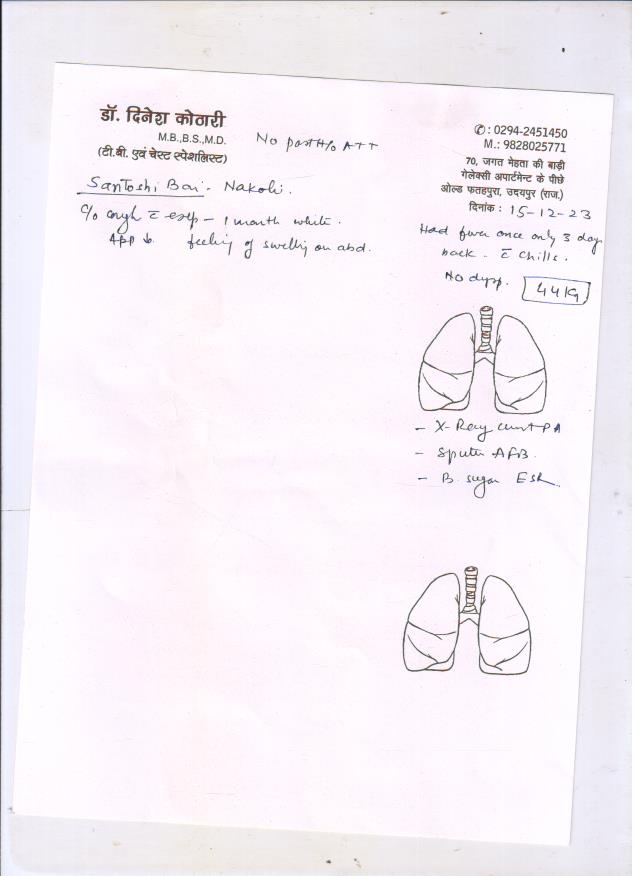 डॉ. दिनेश कोठारी
M.B.,B.S.,M.D.
(टी.बी. एवं चेस्ट स्पेशलिस्ट)
No past H/o ATT
✆: 0294-2451450
M.: 9828025771
70, जगत मेहता की बाड़ी
गेलेक्सी अपार्टमेन्ट के पीछे
ओल्ड फतहपुरा, उदयपुर (राज.)
दिनांक : 15-12-23
Santoshi Bai - Nakoli.
C/o cough c̄ exp - 1 month white.
App ↓ feeling of swelling on abd.
Had fever once only 3 days
back. c̄ chills.
No dysp.
44 Kg
- X-Ray chest PA
- Sputum AFB.
- B. sugar ESR